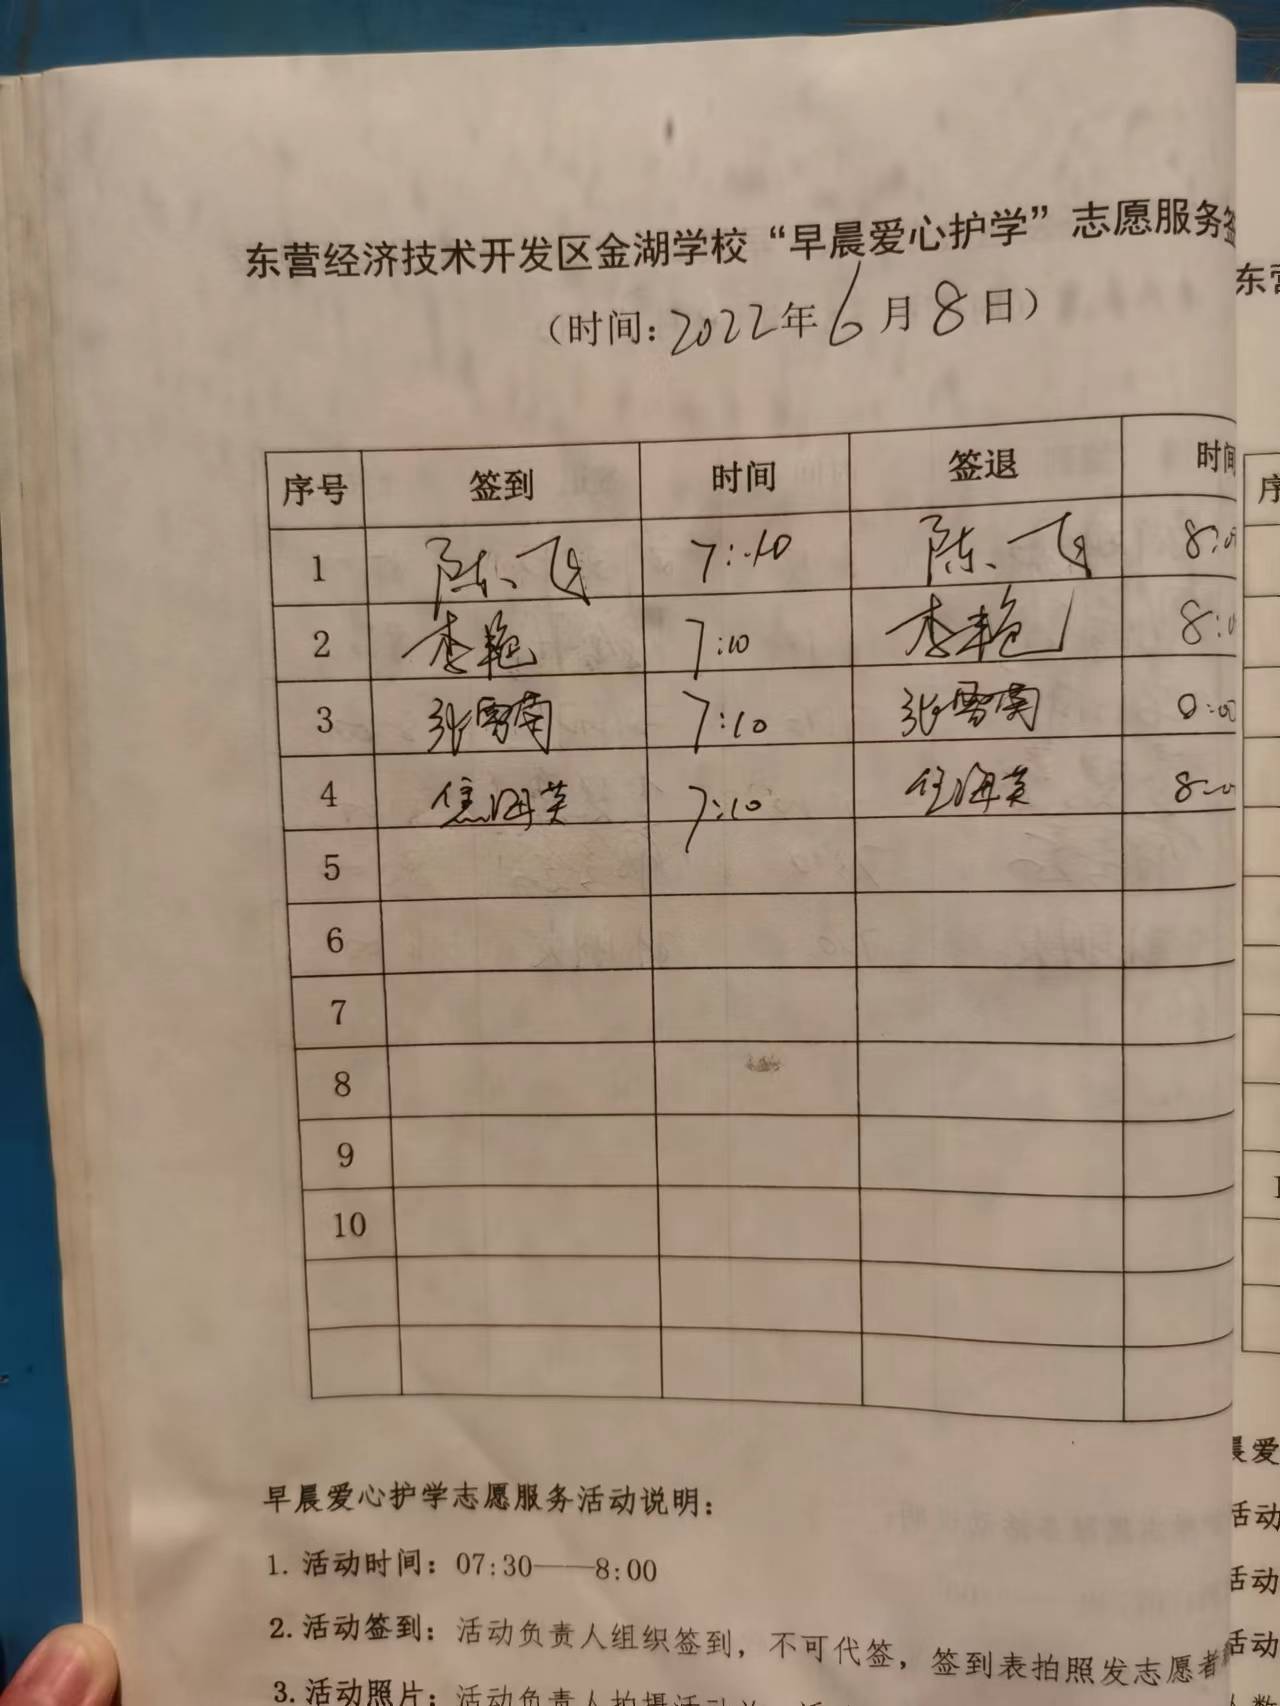 东营经济技术开发区金湖学校“早晨爱心护学”志愿服务签
（时间：2022年6月8日）
序号 签到 时间 签退 时间
1 陈飞 7:10 陈飞 8:0
2 李艳 7:10 李艳 8:0
3 张雪南 7:10 张雪南 8:00
4 焦海英 7:10 焦海英 8:0
5
6
7
8
9
10
早晨爱心护学志愿服务活动说明：
1. 活动时间：07:30——8:00
2. 活动签到：活动负责人组织签到，不可代签，签到表拍照发志愿者
3. 活动照片：活动负责人拍摄活动
东营
序
晨爱
活动
活动
活动
人数